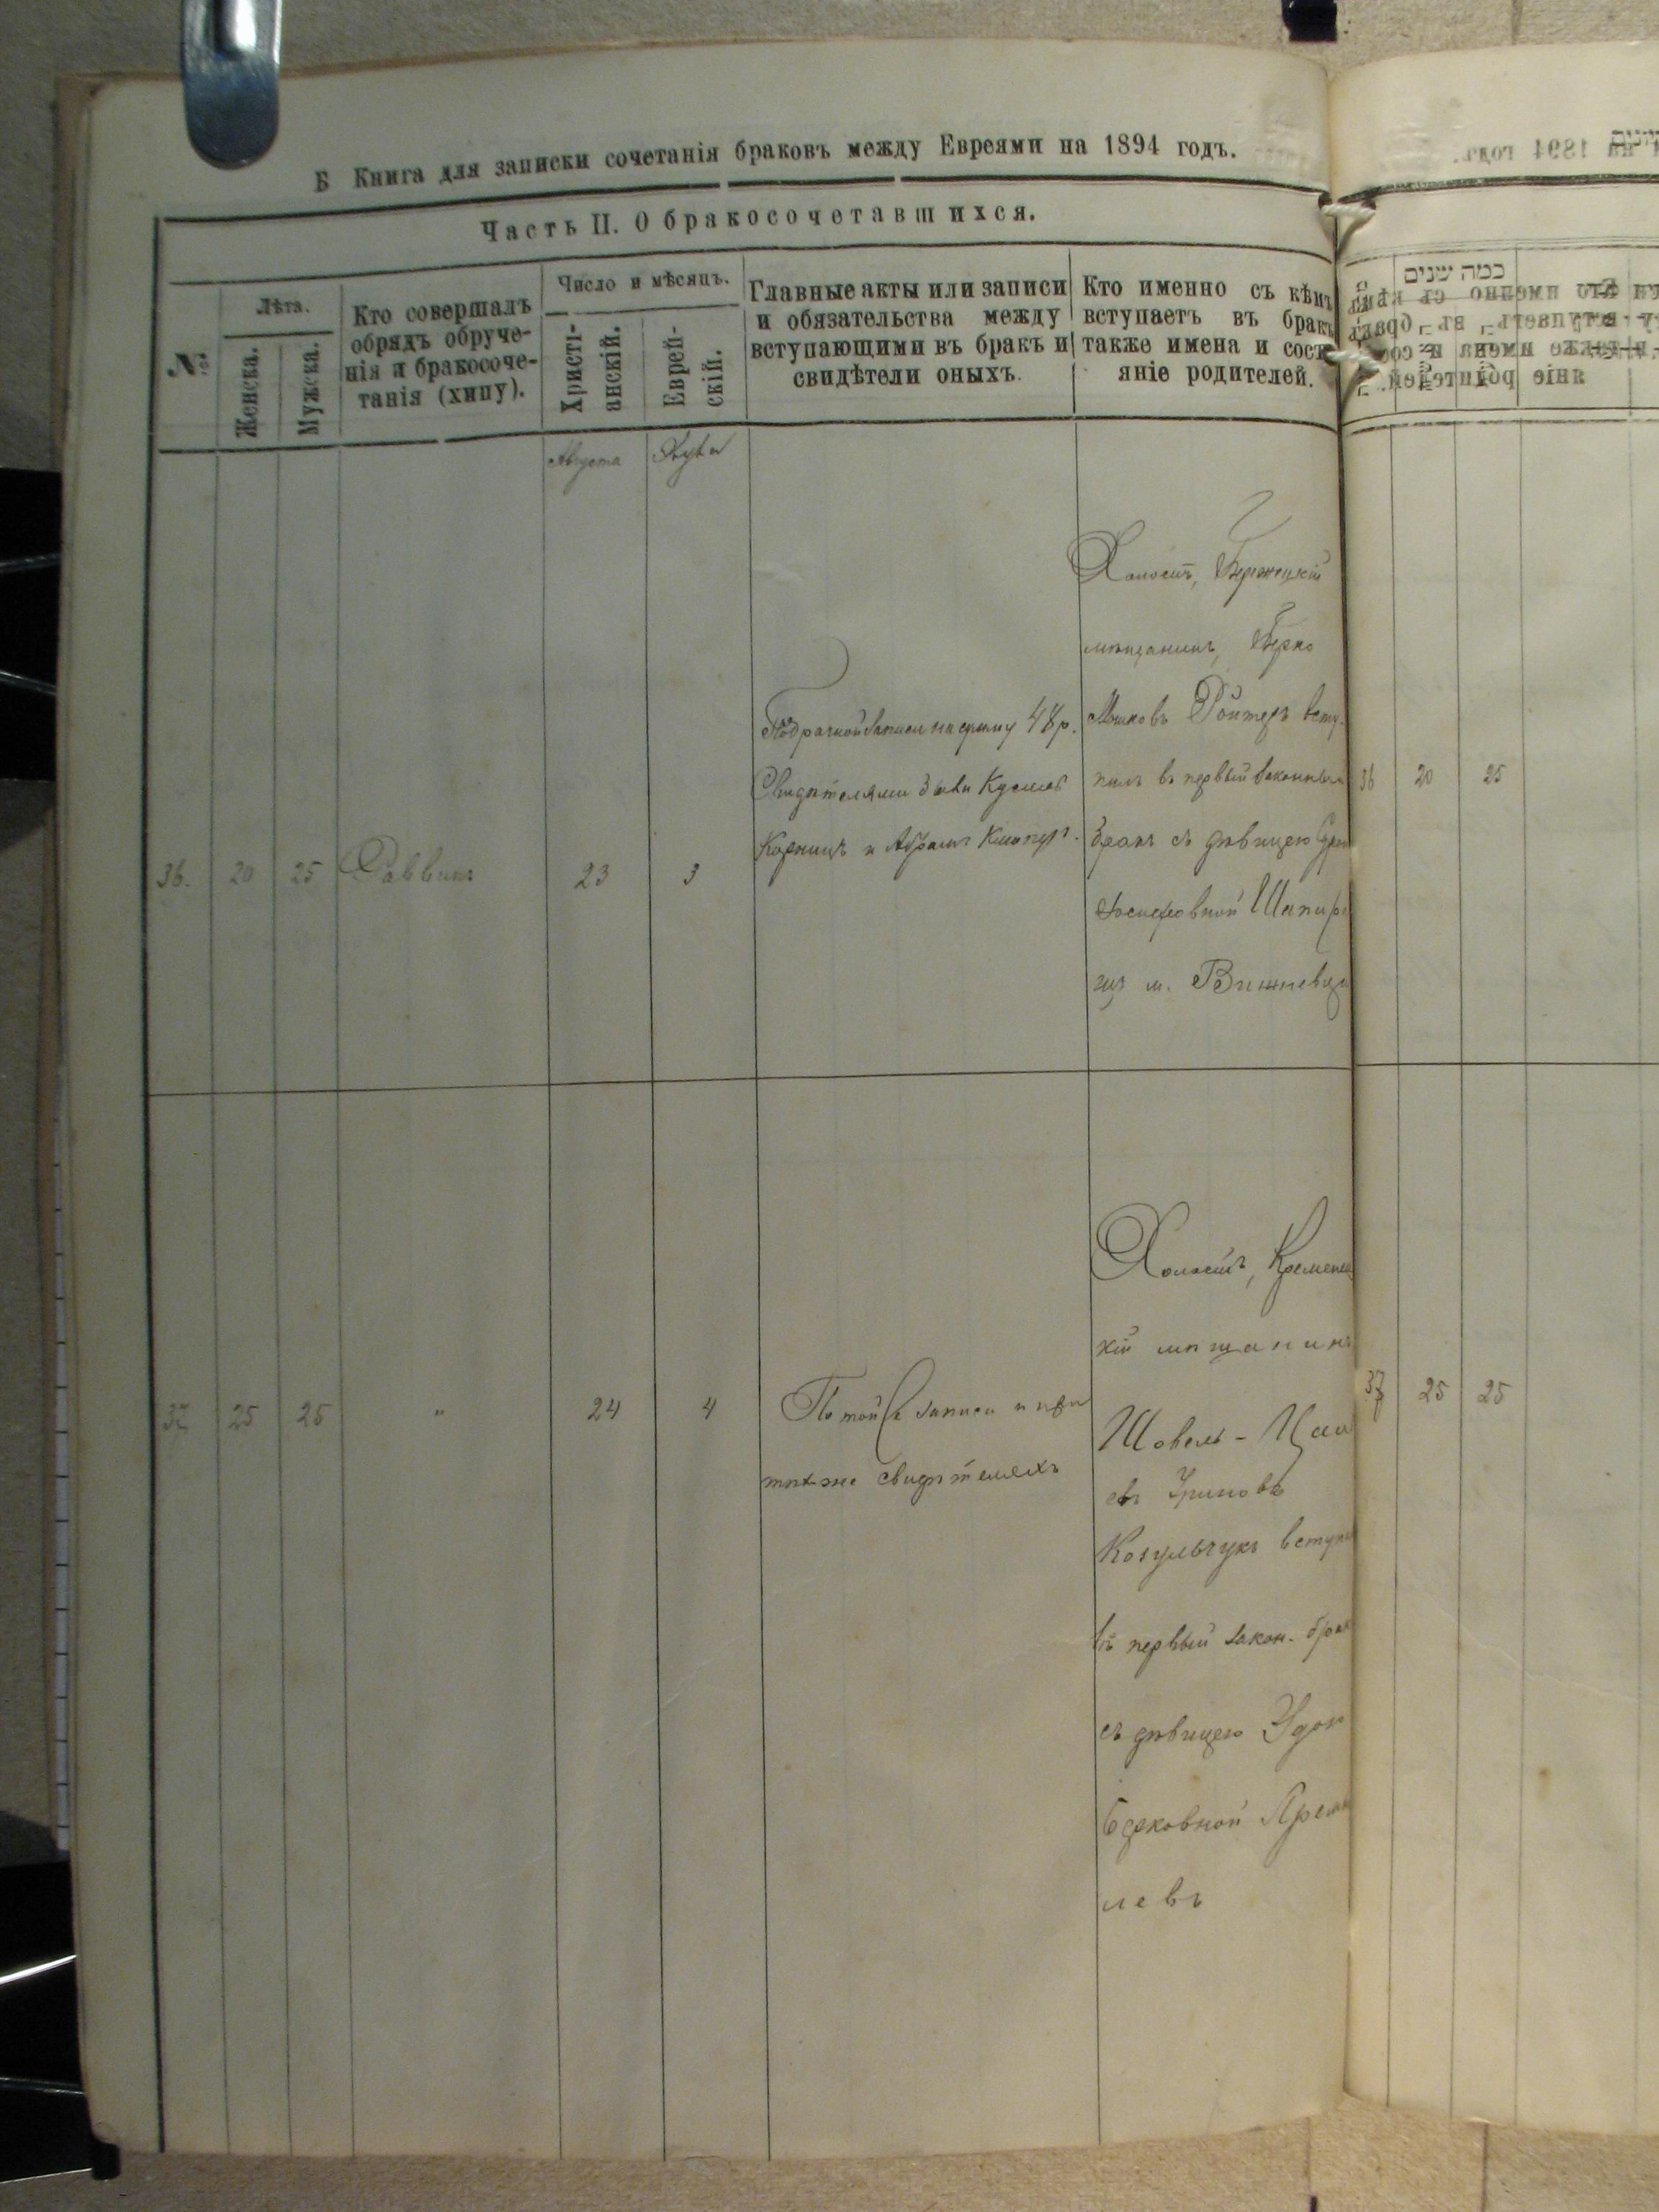 Б Книга для записки сочетанія браковъ между Евреями на 1894 годъ.
Часть II. О бракосочетавшихся.
№
Лѣта.
Женска.
Мужска.
Кто совершалъ
обрядъ обруче-
нія и бракосоче-
танія (хипу).
Число и мѣсяцъ.
Христі-
анскій.
Еврей-
скій.
Главные акты или записи
и обязательства между
вступающими въ бракъ и
свидѣтели оныхъ.
Кто именно съ кѣмъ
вступаетъ въ бракъ
также имена и сост
яніе родителей.
Августа
36. 20 25 Раввинъ 23 3
записи на сумму 48 р.
Свидѣтелями были
и Абрамъ
Холостъ, Бережецкій
мѣщанинъ, Берко
Мошковъ Ройтеръ всту-
пилъ въ первый законный
бракъ съ дѣвицею
Іосифовной Шапиро
изъ м. Вишневца
37 25 25 " 24 4
По той же записи и при
тѣхже свидѣтеляхъ
Холостъ, Кременец
кій мѣщанинъ
Шовель-
Козульчукъ вступил
въ первый закон. брак
съ дѣвицею
Берковной
левъ
כמה שנים
36 20 25
37 25 25